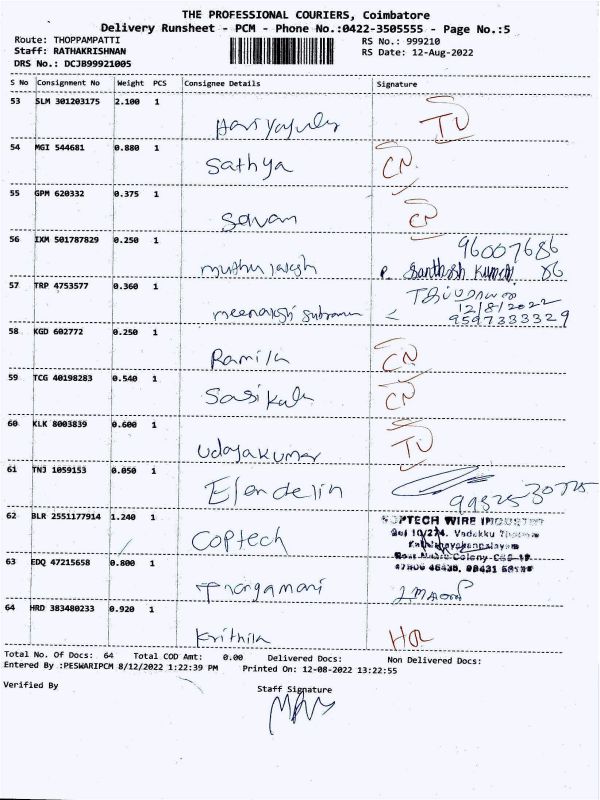 THE PROFESSIONAL COURIERS, Coimbatore
Delivery Runsheet - PCM - Phone No.:0422-3505555 - Page No.:5
Route: THOPPAMPATTI
RS No.: 999210
Staff: RATHAKRISHNAN
RS Date: 12-Aug-2022
DRS No.: DCJB99921005
S No Consignment No Weight PCS Consignee Details Signature
53 SLM 301203175 2.100 1
TU
54 MGI 544681 0.880 1
Sathya CN
55 GPM 620332 0.375 1
CN
56 IXM 501787829 0.250 1
96007686
Santhosh Kumar 86
57 TRP 4753577 0.360 1
12/8/2022
9597333329
58 KGD 602772 0.250 1
Ramila CN
59 TCG 40198283 0.540 1
Sasikala CN
60 KLK 8003839 0.600 1
Udayakumar TU
61 TNJ 1059153 0.050 1
62 BLR 2551177914 1.240 1
Coptech
63 EDQ 47215658 0.800 1
Thangamani
64 HRD 383480233 0.920 1
Krithika
Total No. Of Docs: 64 Total COD Amt: 0.00 Delivered Docs: Non Delivered Docs:
Entered By :PESWARIPCM 8/12/2022 1:22:39 PM Printed On: 12-08-2022 13:22:55
Verified By
Staff Signature